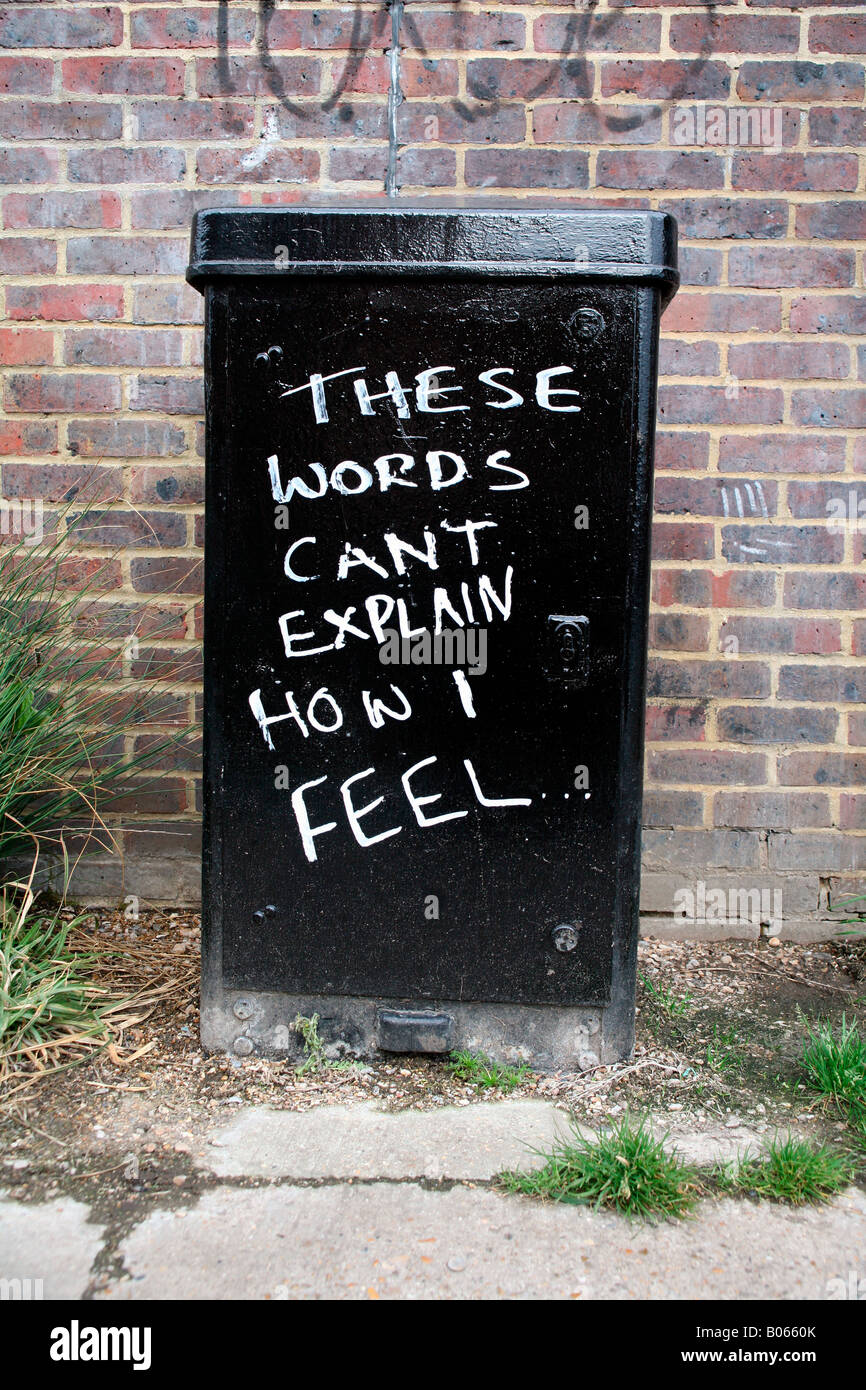 THESE
WORDS
CANT
EXPLAIN
HOW I
FEEL...
alamy
Image ID: B0660K
www.alamy.com